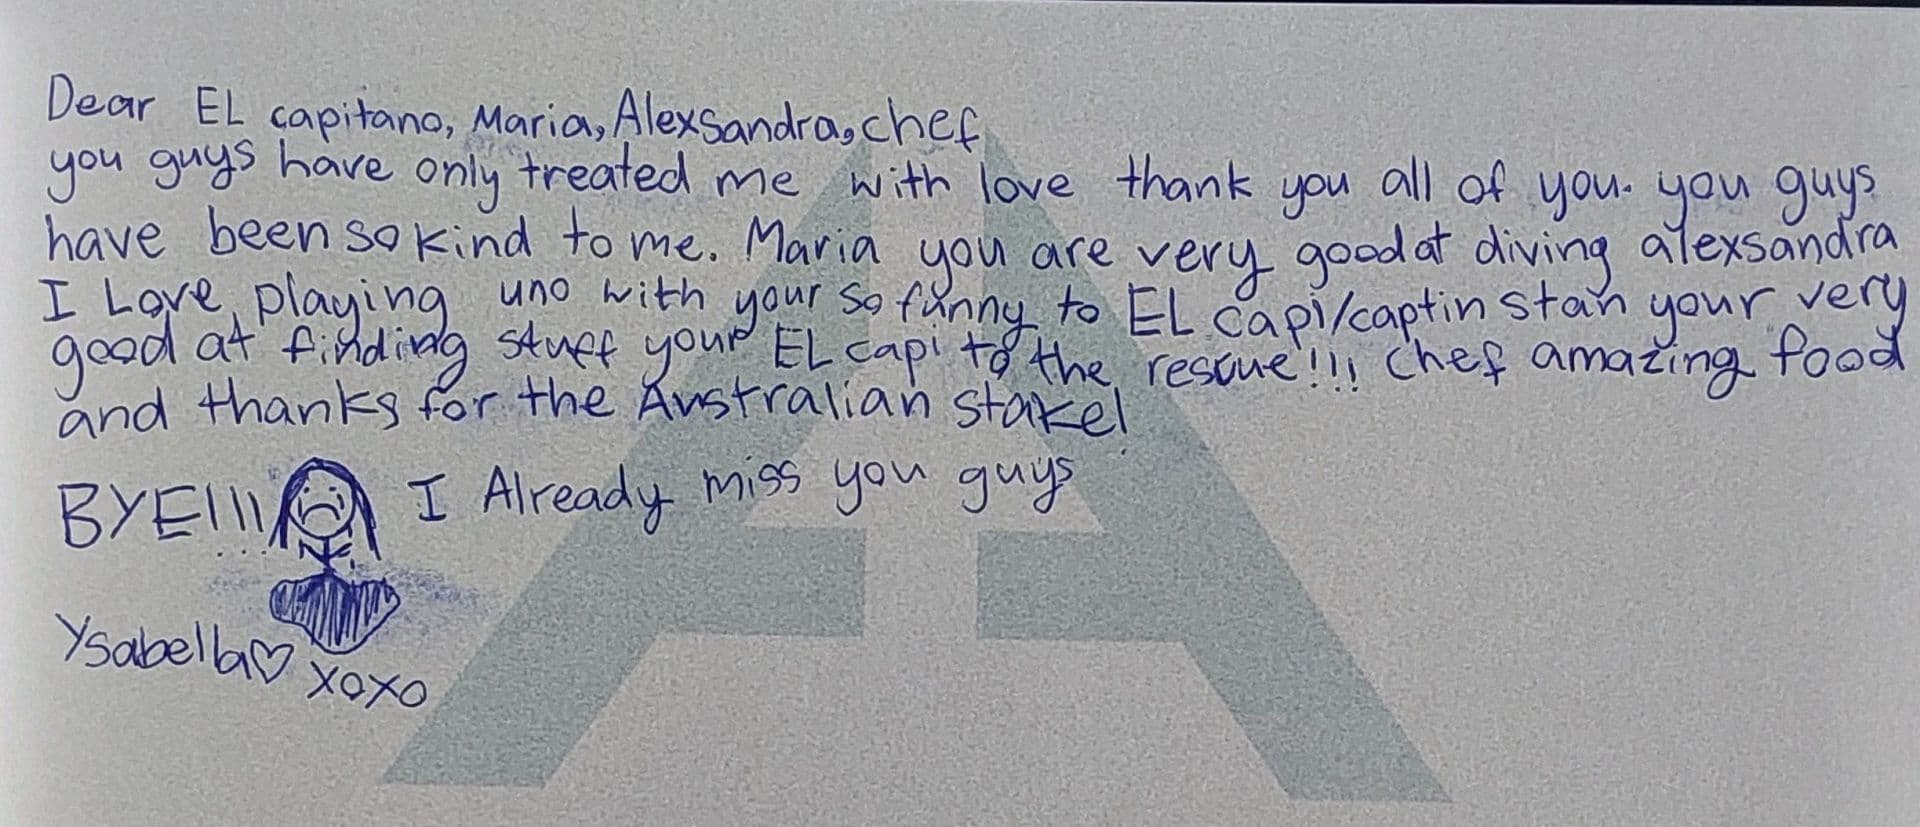 Dear EL capitano, Maria, Alexsandra, chef
you guys have only treated me with love thank you all of you. you guys
have been so kind to me. Maria you are very good at diving alexsandra
I Love playing uno with your so funny to EL capi/captin stan your very
good at finding stuff your EL capi to the rescue!!! chef amazing food
and thanks for the Australian stake!
BYE!!! I Already miss you guys
Ysabella♡ xoxo